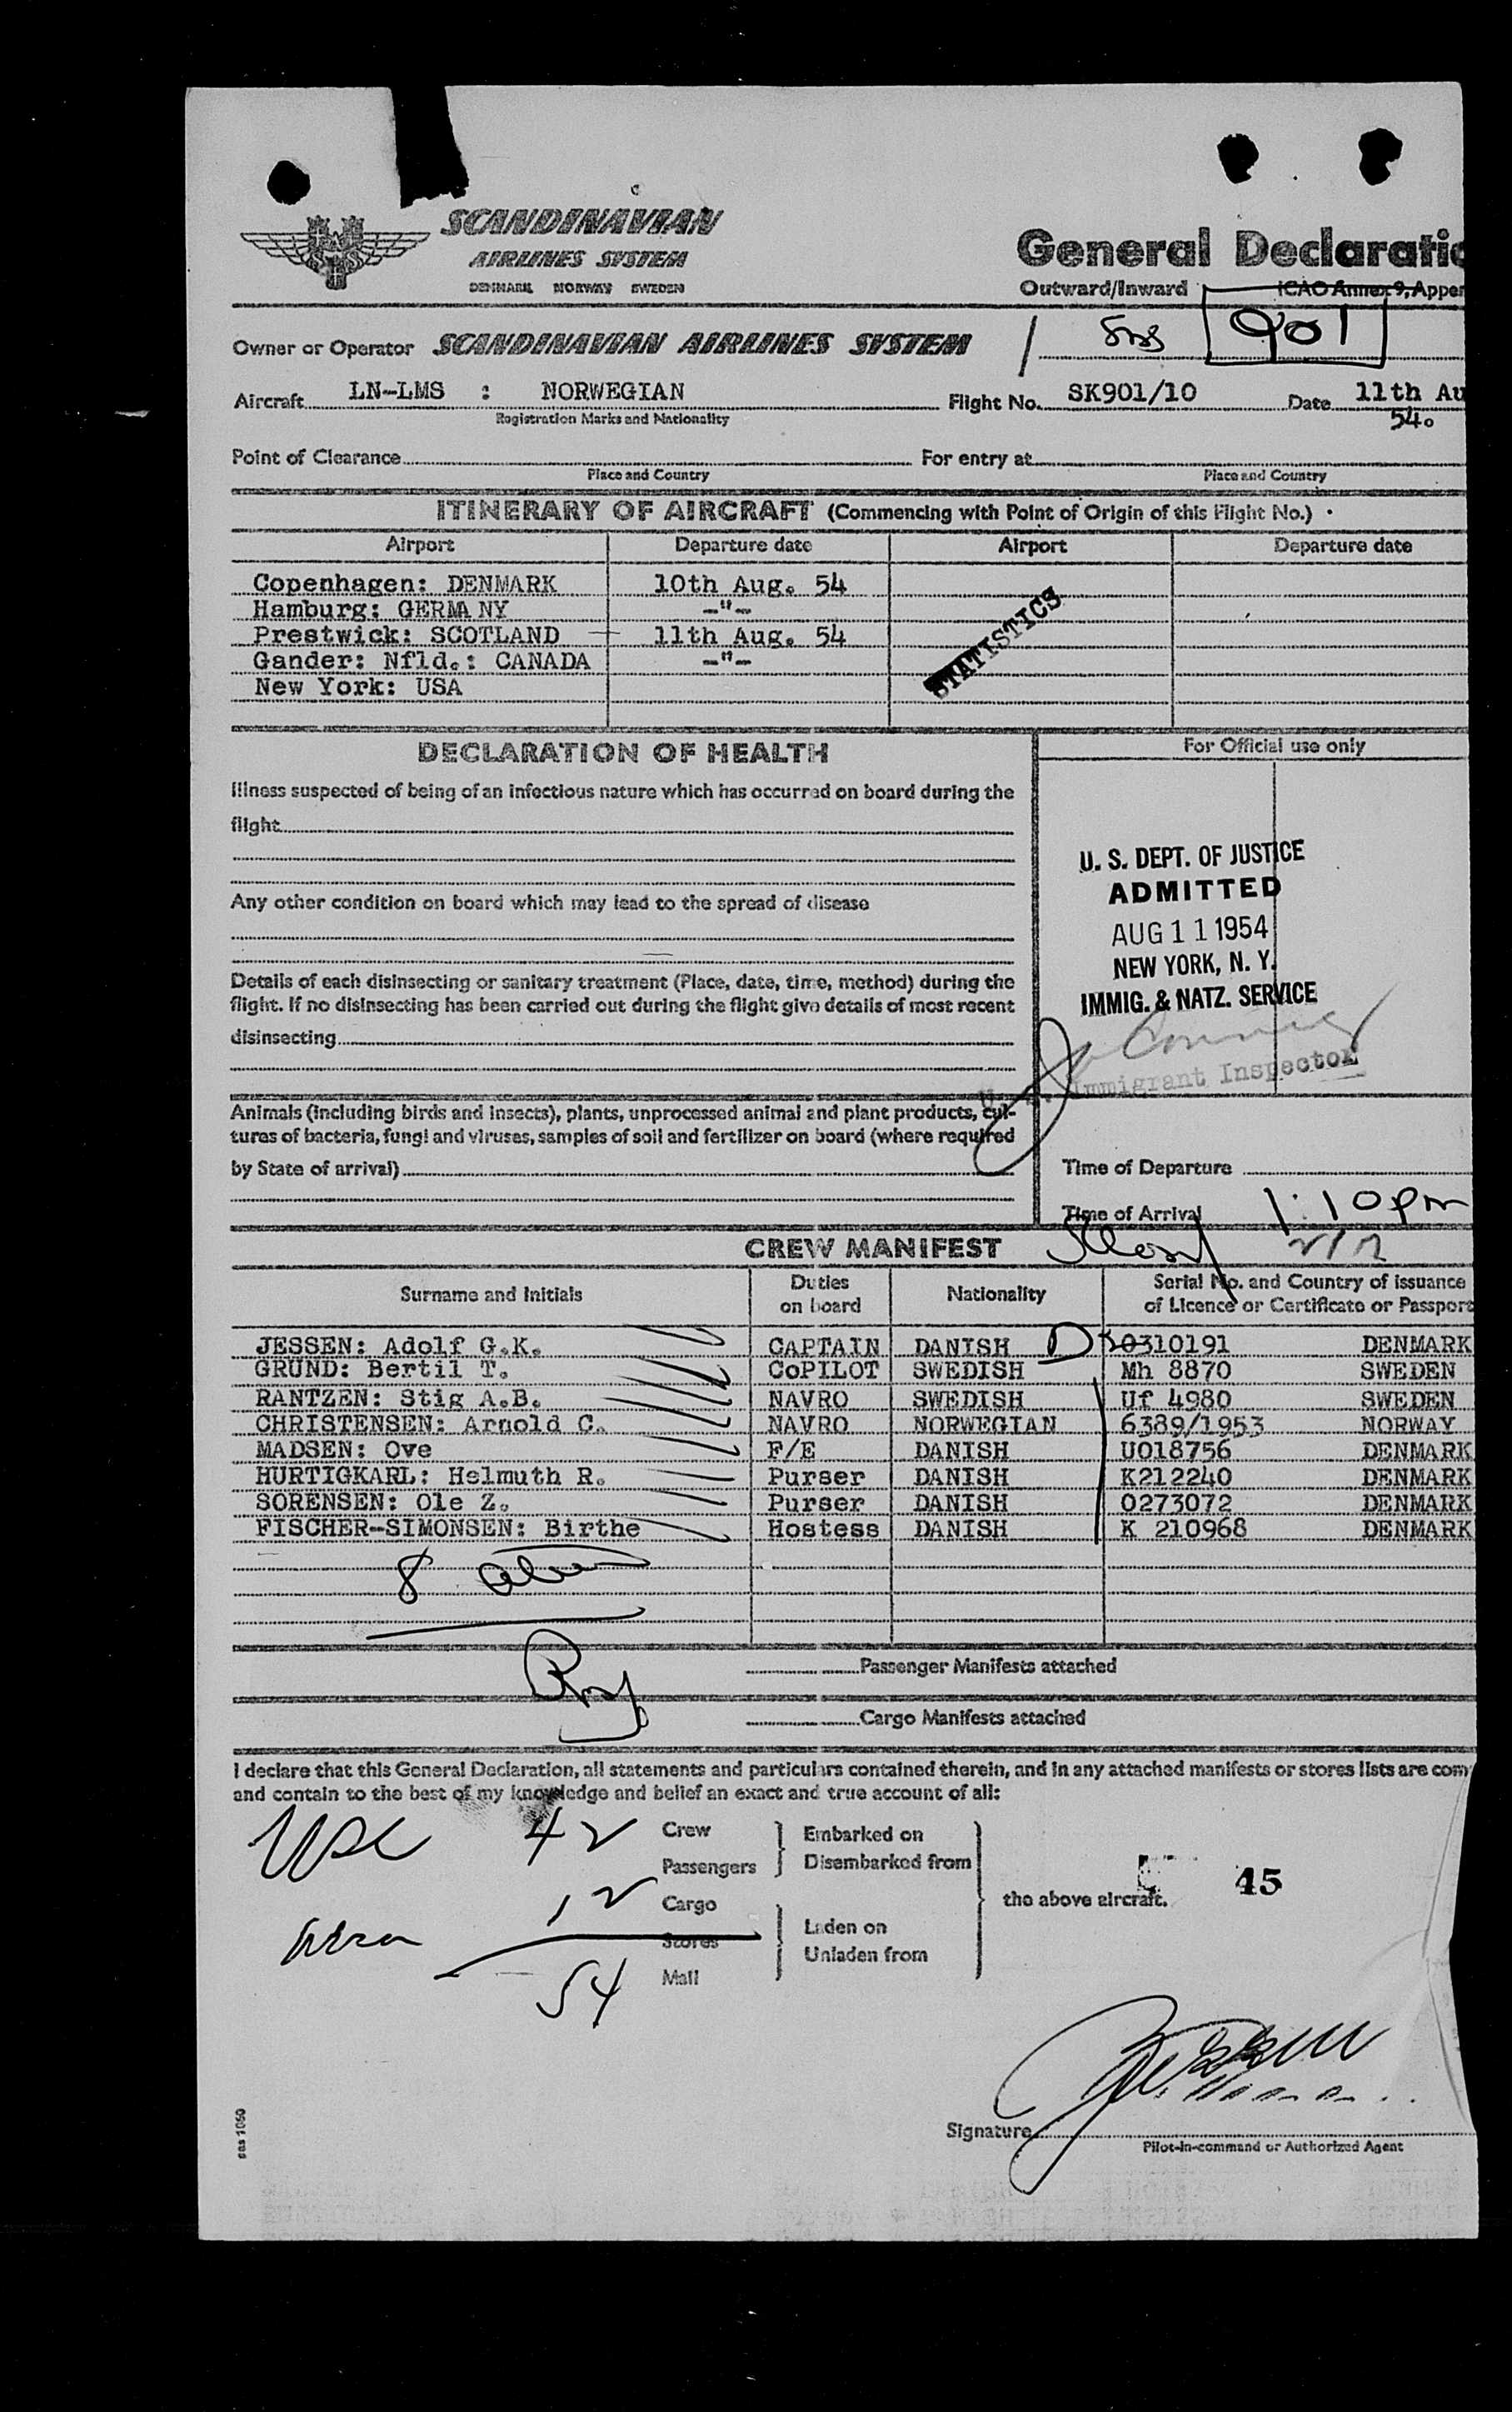 SCANDINAVIAN
AIRLINES SYSTEM
DENMARK NORWAY SWEDEN
General Declaratio
Outward/Inward ICAO Annex 9, Appen
Owner or Operator SCANDINAVIAN AIRLINES SYSTEM 901
Aircraft LN-LMS : NORWEGIAN Flight No. SK901/10 Date 11th Au
54.
Registration Marks and Nationality
Point of Clearance For entry at
Place and Country Place and Country
ITINERARY OF AIRCRAFT (Commencing with Point of Origin of this Flight No.)
Airport Departure date Airport Departure date
Copenhagen: DENMARK 10th Aug. 54
Hamburg: GERMANY -"-
Prestwick: SCOTLAND 11th Aug. 54
Gander: Nfld.: CANADA -"-
New York: USA
STATISTICS
DECLARATION OF HEALTH
Illness suspected of being of an infectious nature which has occurred on board during the
flight
Any other condition on board which may lead to the spread of disease
Details of each disinsecting or sanitary treatment (Place, date, time, method) during the
flight. If no disinsecting has been carried out during the flight give details of most recent
disinsecting
Animals (including birds and insects), plants, unprocessed animal and plant products, cul-
tures of bacteria, fungi and viruses, samples of soil and fertilizer on board (where required
by State of arrival)
For Official use only
U. S. DEPT. OF JUSTICE
ADMITTED
AUG 11 1954
NEW YORK, N. Y.
IMMIG. & NATZ. SERVICE
Immigrant Inspector
Time of Departure
Time of Arrival 1:10 pm
CREW MANIFEST
Surname and Initials Duties on board Nationality Serial No. and Country of issuance
of Licence or Certificate or Passport
JESSEN: Adolf G.K. CAPTAIN DANISH D K0310191 DENMARK
GRUND: Bertil T. CoPILOT SWEDISH Mh 8870 SWEDEN
RANTZEN: Stig A.B. NAVRO SWEDISH Uf 4980 SWEDEN
CHRISTENSEN: Arnold C. NAVRO NORWEGIAN 6389/1953 NORWAY
MADSEN: Ove F/E DANISH U018756 DENMARK
HURTIGKARL: Helmuth R. Purser DANISH K212240 DENMARK
SORENSEN: Ole Z. Purser DANISH 0273072 DENMARK
FISCHER-SIMONSEN: Birthe Hostess DANISH K 210968 DENMARK
8
Passenger Manifests attached
Cargo Manifests attached
I declare that this General Declaration, all statements and particulars contained therein, and in any attached manifests or stores lists are com
and contain to the best of my knowledge and belief an exact and true account of all:
USC 42 Crew Embarked on
Passengers Disembarked from
12 Cargo the above aircraft. 45
Stores Laden on
Unladen from
54 Mail
Signature
Pilot-in-command or Authorized Agent
sas 1050